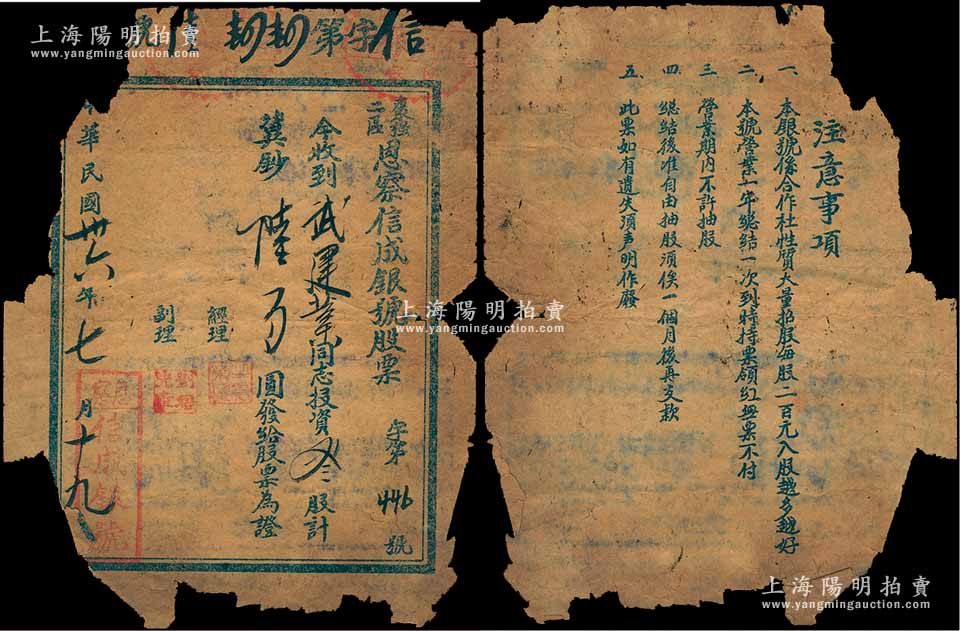 上海陽明拍賣
www.yangmingauction.com
信字第
棗強
二區
恩察信成銀號股票
字第446號
今收到武運業同志投資叁股計
冀鈔陸百圓發給股票為證
經理
副理
中華民國卅六年七月十九
信成銀號
注意事項
一、本銀號係合作社性質大量招股每股二百元入股越多越好
二、本號營業一年總結一次到時持票領紅無票不付
三、營業期內不許抽股
四、總結後准自由抽股須俟一個月後再交款
五、此票如有遺失須声明作廢
上海陽明拍賣
www.yangmingauction.com
上海陽明拍賣
www.yangmingauction.com